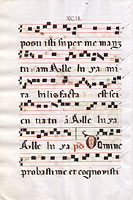 XCIII.
posuisti super me manū
tuam Alle lu ya mi
rabilis facta est sci e
n ti a tu a Alle lu ya
Alle lu ya ps Domine
probasti me et cognovisti